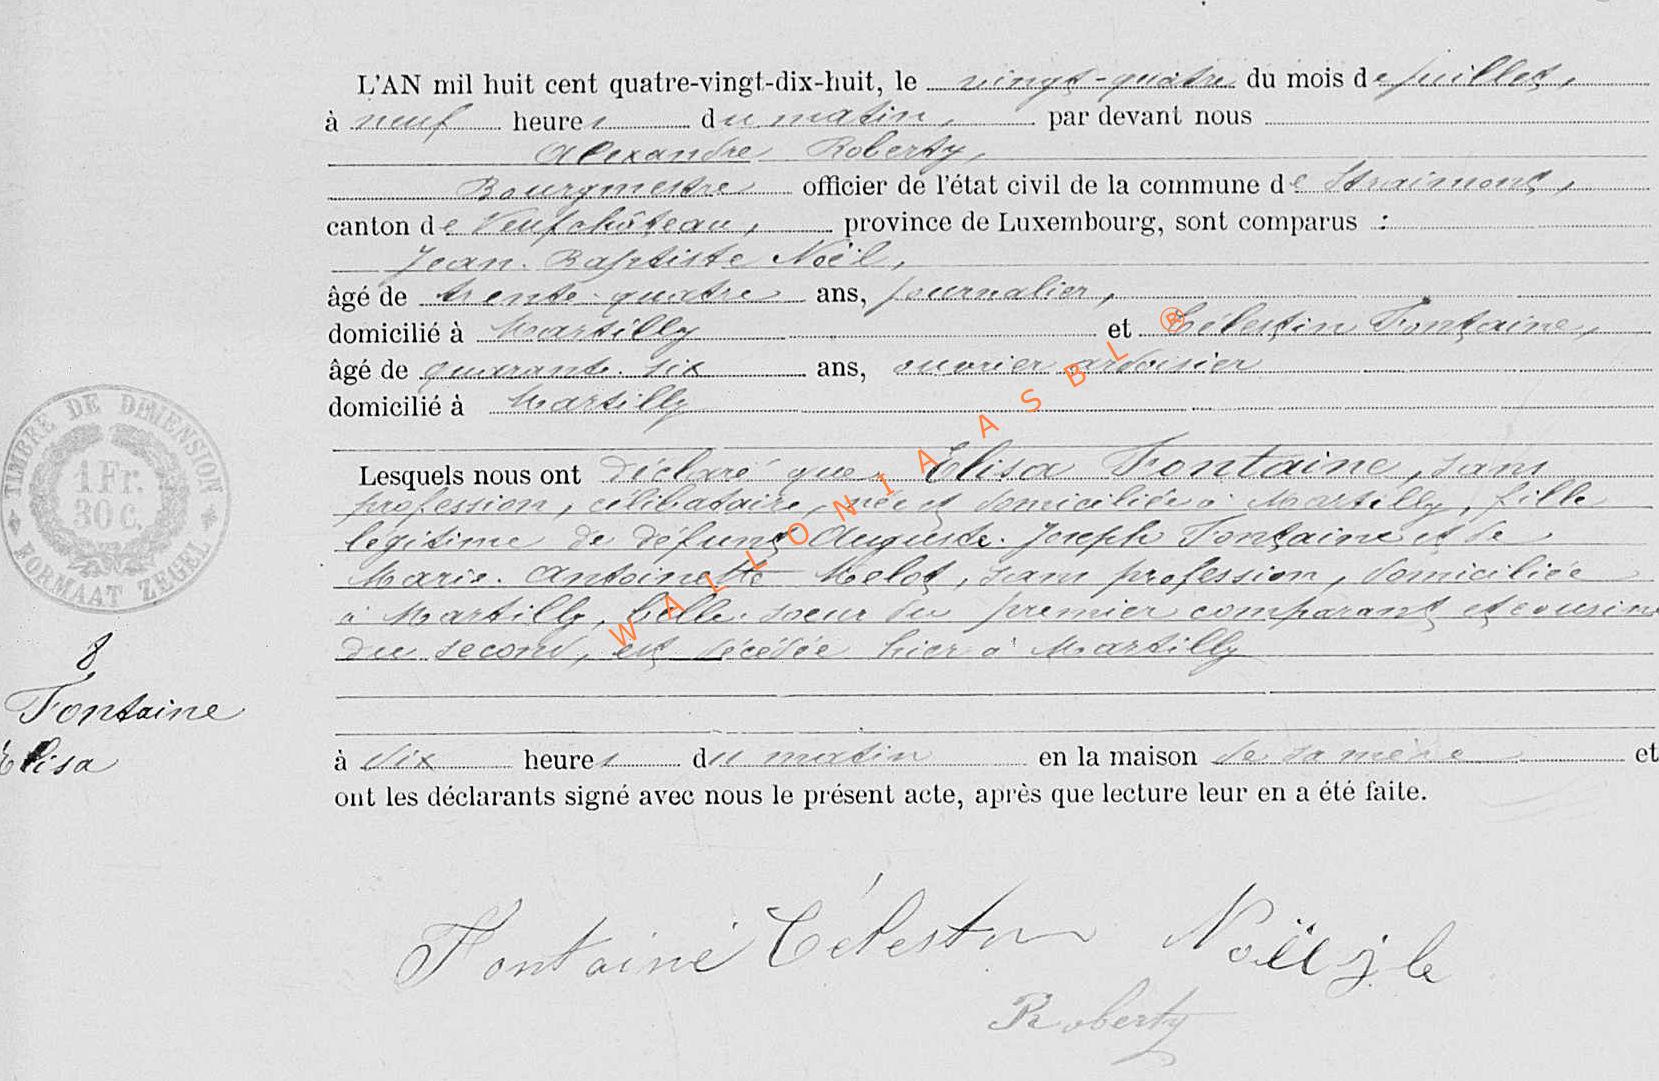 L'AN mil huit cent quatre-vingt-dix-huit, le vingt-quatre du mois de juillet,
à neuf heures du matin, par devant nous
Alexandre Roberty,
Bourgmestre officier de l'état civil de la commune de Straimont,
canton de Neufchâteau, province de Luxembourg, sont comparus :
Jean-Baptiste Noël,
âgé de trente-quatre ans, journalier,
domicilié à Martilly et Célestin Fontaine,
âgé de quarante-six ans, ouvrier ardoisier
domicilié à Martilly
Lesquels nous ont déclaré que Elisa Fontaine, sans
profession, célibataire, née et domiciliée à Martilly, fille
légitime de défunt Auguste-Joseph Fontaine et de
Marie-Antoinette Melot, sans profession, domiciliée
à Martilly, belle-soeur du premier comparant et cousine
du second, est décédée hier à Martilly
à dix heures du matin en la maison de sa mère et
ont les déclarants signé avec nous le présent acte, après que lecture leur en a été faite.
8
Fontaine
Elisa
TIMBRE DE DIMENSION
1 Fr.
30 C.
FORMAAT ZEGEL
Fontaine Célestin Noël j b
Roberty
WALLONIA ASBL ®